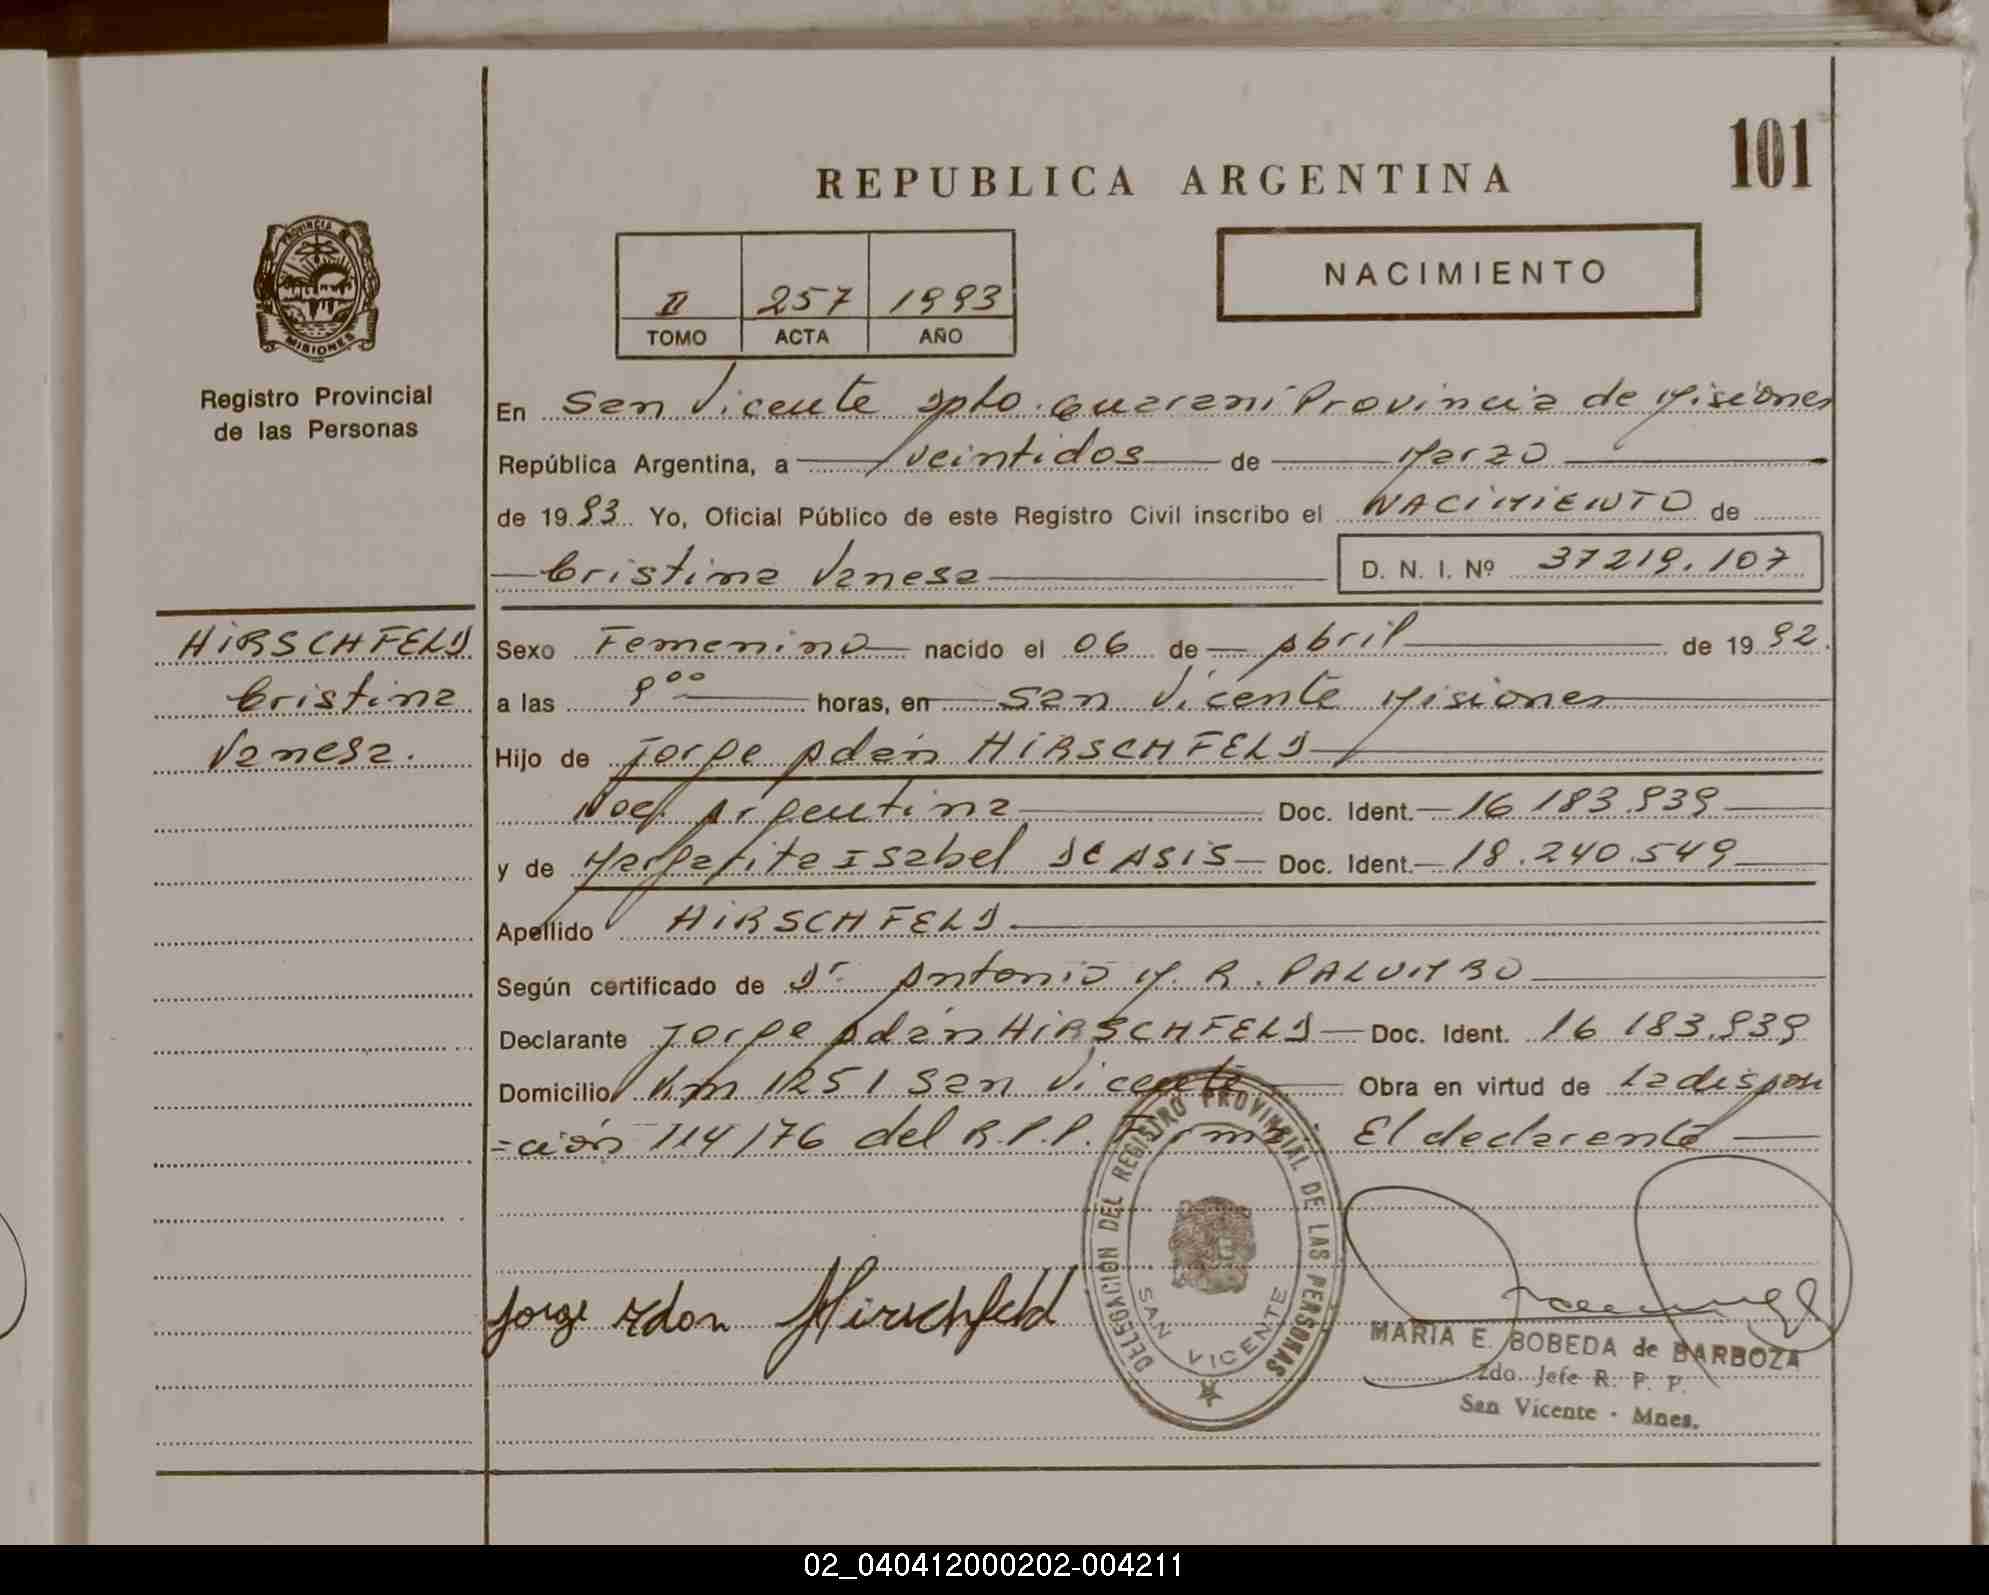 101
REPUBLICA ARGENTINA
PROVINCIA DE
MISIONES
Registro Provincial
de las Personas
II 257 1993
TOMO ACTA AÑO
NACIMIENTO
En San Vicente Dpto. Guarani Provincia de Misiones
República Argentina, a veintidos de Marzo
de 1993 Yo, Oficial Público de este Registro Civil inscribo el NACIMIENTO de
Cristina Vanesa D. N. I. Nº 37219.107
HIRSCHFELD
Cristina
Vanesa.
Sexo Femenino nacido el 06 de Abril de 1992.
a las 9⁰⁰ horas, en San Vicente Misiones
Hijo de Jorge Adán HIRSCHFELD
Nac. Argentina Doc. Ident. 16 183.939
y de Margarita Isabel DE ASIS Doc. Ident. 18.240.549
Apellido HIRSCHFELD
Según certificado de Dr Antonio M. R. PALUMBO
Declarante Jorge Adán HIRSCHFELD Doc. Ident. 16 183.939
Domicilio Km 1251 San Vicente Obra en virtud de La disposi
=ción 114/76 del R.P.P. Firma: El declarante
Jorge Adan Hirschfeld
DELEGACION DEL REGISTRO PROVINCIAL DE LAS PERSONAS
SAN VICENTE
MARIA E. BOBEDA de BARBOZA
2do. Jefe R. P. P.
San Vicente - Mnes.
02_040412000202-004211